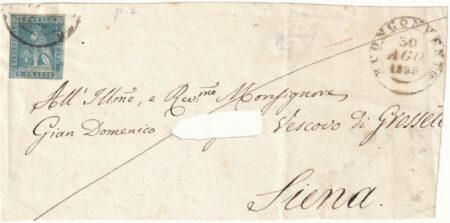 p. 2
BUONCONVENTO
30
AGO.
1855
All' Illmo, e Rev.mo Monsignore
Gian Domenico Vescovo di Grosseto
Siena.